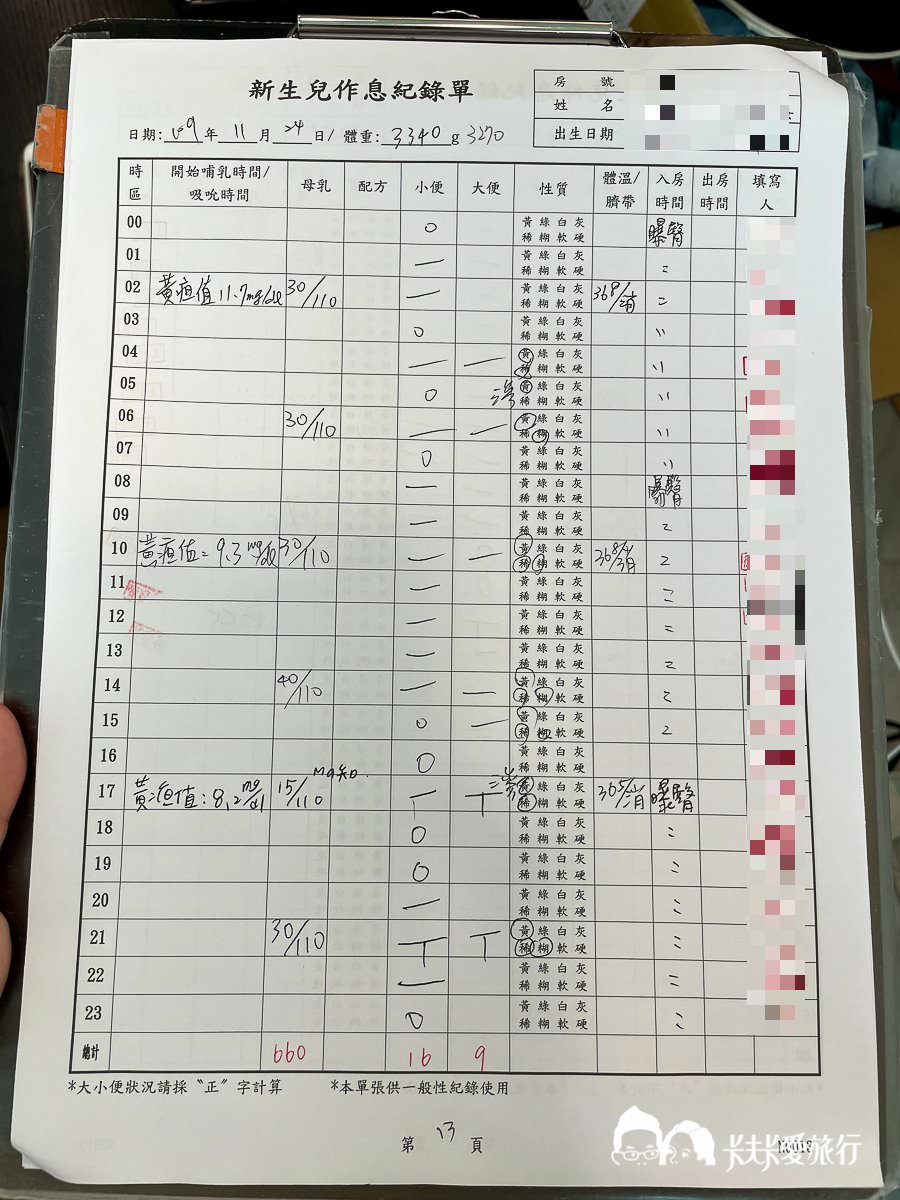 新生兒作息紀錄單
房 號
姓 名
出生日期
日期:109年11月24日/ 體重:3340g 3270
時區 開始哺乳時間/吸吮時間 母乳 配方 小便 大便 性質 體溫/臍帶 入房時間 出房時間 填寫人
00 O 黃綠白灰 稀糊軟硬
01 一 黃綠白灰 稀糊軟硬
02 黃疸值 11.7mg/dl 30/110 一 黃綠白灰 稀糊軟硬 368/
03 O 黃綠白灰 稀糊軟硬
04 一 一 黃綠白灰 稀糊軟硬
05 O 黃綠白灰 稀糊軟硬
06 30/110 一 一 黃綠白灰 稀糊軟硬
07 O 黃綠白灰 稀糊軟硬
08 一 黃綠白灰 稀糊軟硬
09 一 黃綠白灰 稀糊軟硬
10 黃疸值=9.3mg/dl 30/110 一 一 黃綠白灰 稀糊軟硬 368/
11 一 黃綠白灰 稀糊軟硬
12 一 黃綠白灰 稀糊軟硬
13 一 黃綠白灰 稀糊軟硬
14 40/110 一 一 黃綠白灰 稀糊軟硬
15 O 一 黃綠白灰 稀糊軟硬
16 O 黃綠白灰 稀糊軟硬
17 黃疸值:8.2mg/dl 15/110 T T 黃綠白灰 稀糊軟硬 365/
18 O 黃綠白灰 稀糊軟硬
19 O 黃綠白灰 稀糊軟硬
20 一 黃綠白灰 稀糊軟硬
21 30/110 T T 黃綠白灰 稀糊軟硬
22 一 黃綠白灰 稀糊軟硬
23 O 黃綠白灰 稀糊軟硬
總計 660 16 9
*大小便狀況請採〝正〞字計算 *本單張供一般性紀錄使用
第 13 頁
卡夫卡愛旅行